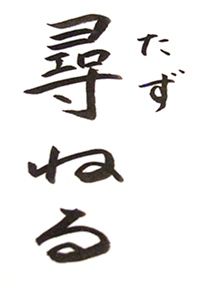 たず
尋ねる